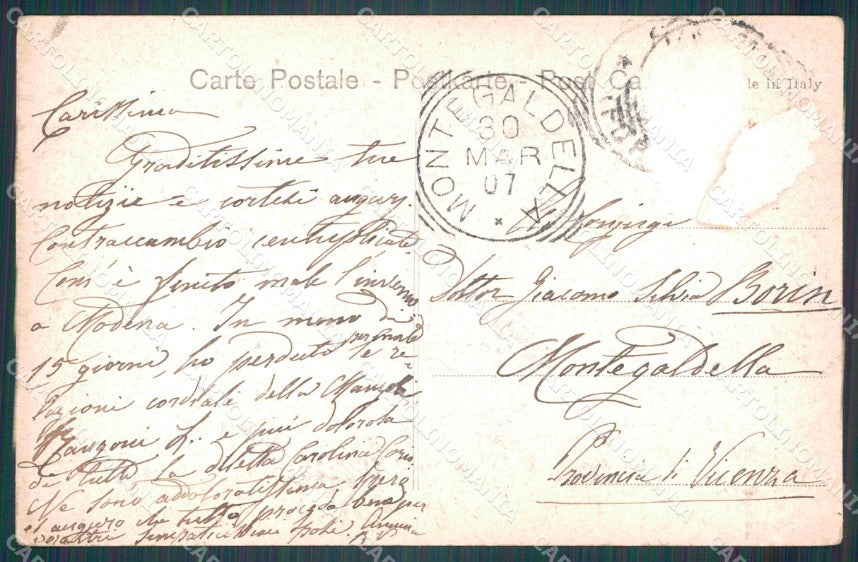 Carte Postale - Postkarte - Post Ca
in Italy
MONTEGALDELLA
30
MAR
07
Carissima
Graditissime tue
notizie e cortesi auguri.
Contraccambio centuplicate.
Com'è finito male l'inverno
a Modena. In meno di
15 giorni, ho perduto per morte le re-
lazioni cordiale della
e più dolorosa
de tutte, la diletta Carolina
Ne sono addoloratissima. Spero
e auguro che tutto proceda bene per
Coniugi
Dottor Giacomo Silvia Borin
Montegaldella
Provincia di Vicenza
CARTOLINOMANIA